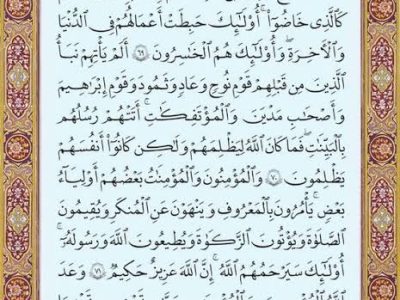 كَٱلَّذِى خَاضُوٓا۟ ۚ أُو۟لَـٰٓئِكَ حَبِطَتْ أَعْمَـٰلُهُمْ فِى ٱلدُّنْيَا
وَٱلْـَٔاخِرَةِ ۖ وَأُو۟لَـٰٓئِكَ هُمُ ٱلْخَـٰسِرُونَ ٦٩ أَلَمْ يَأْتِهِمْ نَبَأُ
ٱلَّذِينَ مِن قَبْلِهِمْ قَوْمِ نُوحٍ وَعَادٍ وَثَمُودَ وَقَوْمِ إِبْرَٰهِيمَ
وَأَصْحَـٰبِ مَدْيَنَ وَٱلْمُؤْتَفِكَـٰتِ ۚ أَتَتْهُمْ رُسُلُهُم
بِٱلْبَيِّنَـٰتِ ۖ فَمَا كَانَ ٱللَّهُ لِيَظْلِمَهُمْ وَلَـٰكِن كَانُوٓا۟ أَنفُسَهُمْ
يَظْلِمُونَ ٧٠ وَٱلْمُؤْمِنُونَ وَٱلْمُؤْمِنَـٰتُ بَعْضُهُمْ أَوْلِيَآءُ
بَعْضٍ ۚ يَأْمُرُونَ بِٱلْمَعْرُوفِ وَيَنْهَوْنَ عَنِ ٱلْمُنكَرِ وَيُقِيمُونَ
ٱلصَّلَوٰةَ وَيُؤْتُونَ ٱلزَّكَوٰةَ وَيُطِيعُونَ ٱللَّهَ وَرَسُولَهُۥٓ ۚ
أُو۟لَـٰٓئِكَ سَيَرْحَمُهُمُ ٱللَّهُ ۗ إِنَّ ٱللَّهَ عَزِيزٌ حَكِيمٌ ٧١ وَعَدَ